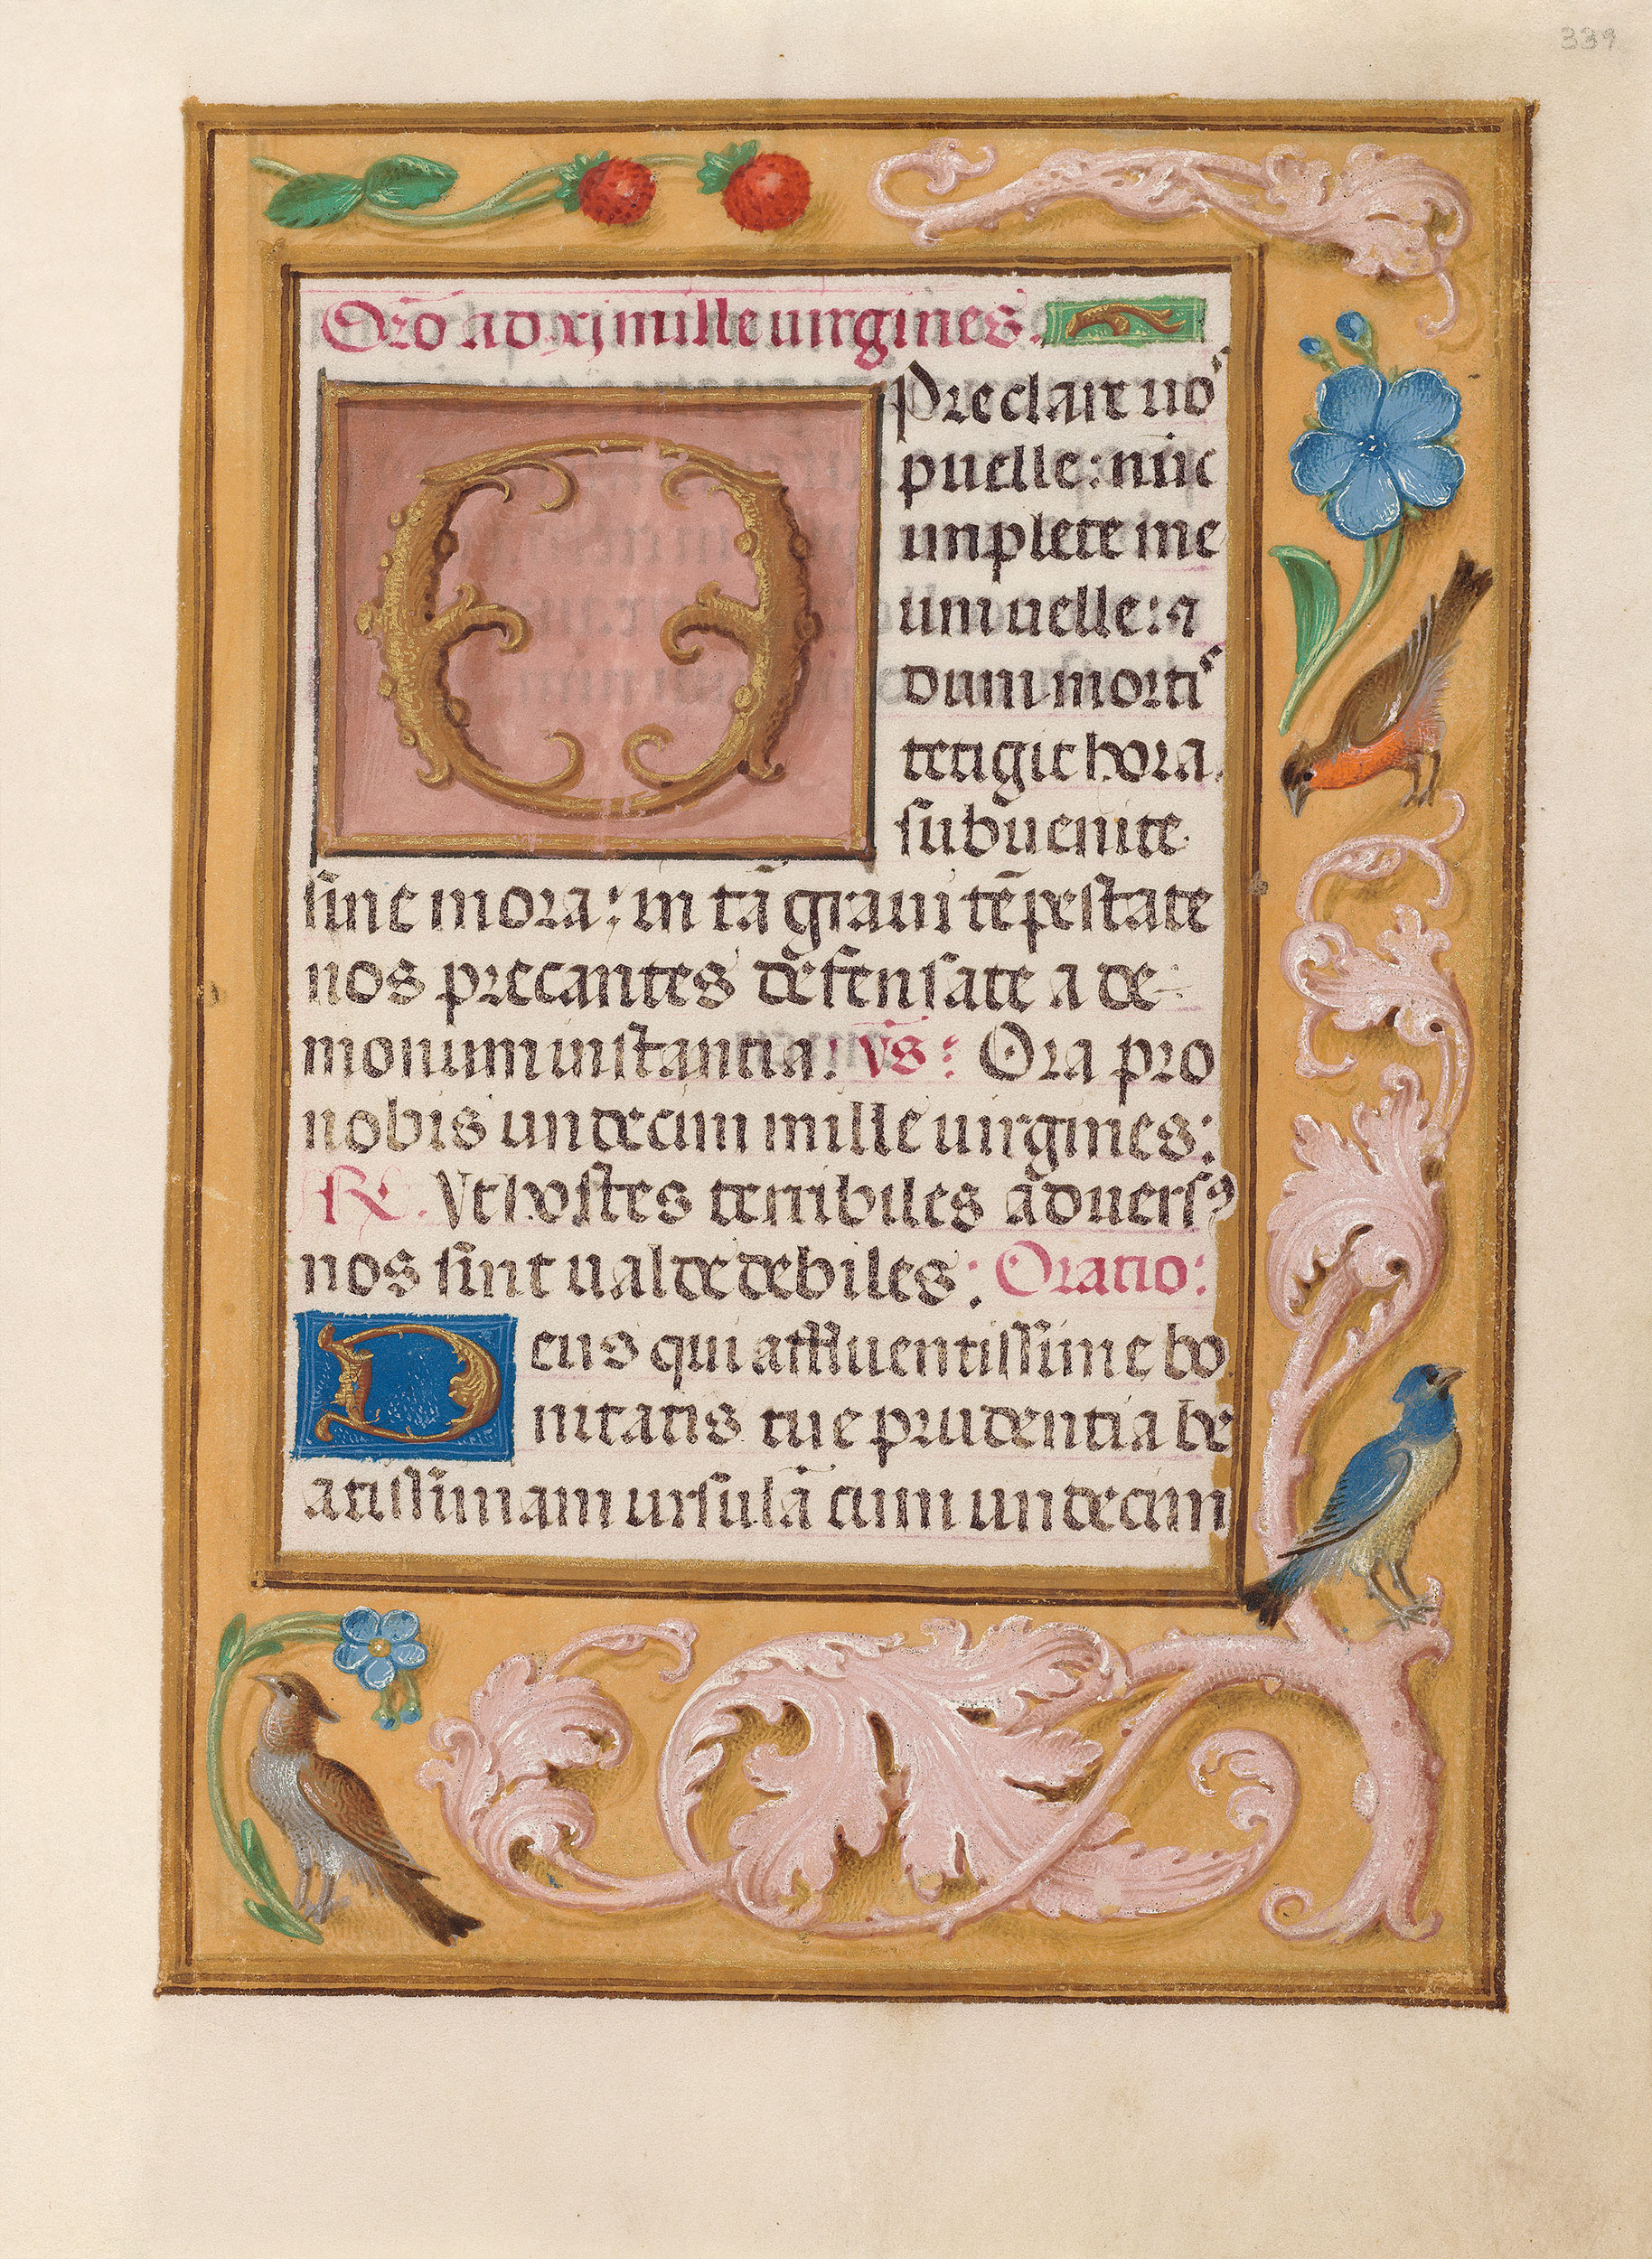 339
Orō ad xj mille uirgines.
O Preclare uōˢ
puelle: nūc
implete me
um uelle: ⁊
dum mortiˢ
tetigit hora,
subuenite
sine mora: in tā graui tēpestate
nos precantes defensate a de-
monum instantia: Vs: Ora pro
nobis undecim mille uirgines:
R. Vt hostes terribiles aduersꝰ
nos sint ualde debiles: Oratio:
Deus qui affluentissime bo
nitatis tue prudentia be
atissimam ursulā cum undecim